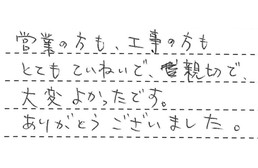 営業の方も、工事の方も
とてもていねいで、親切で、
大変よかったです。
ありがとうございました。